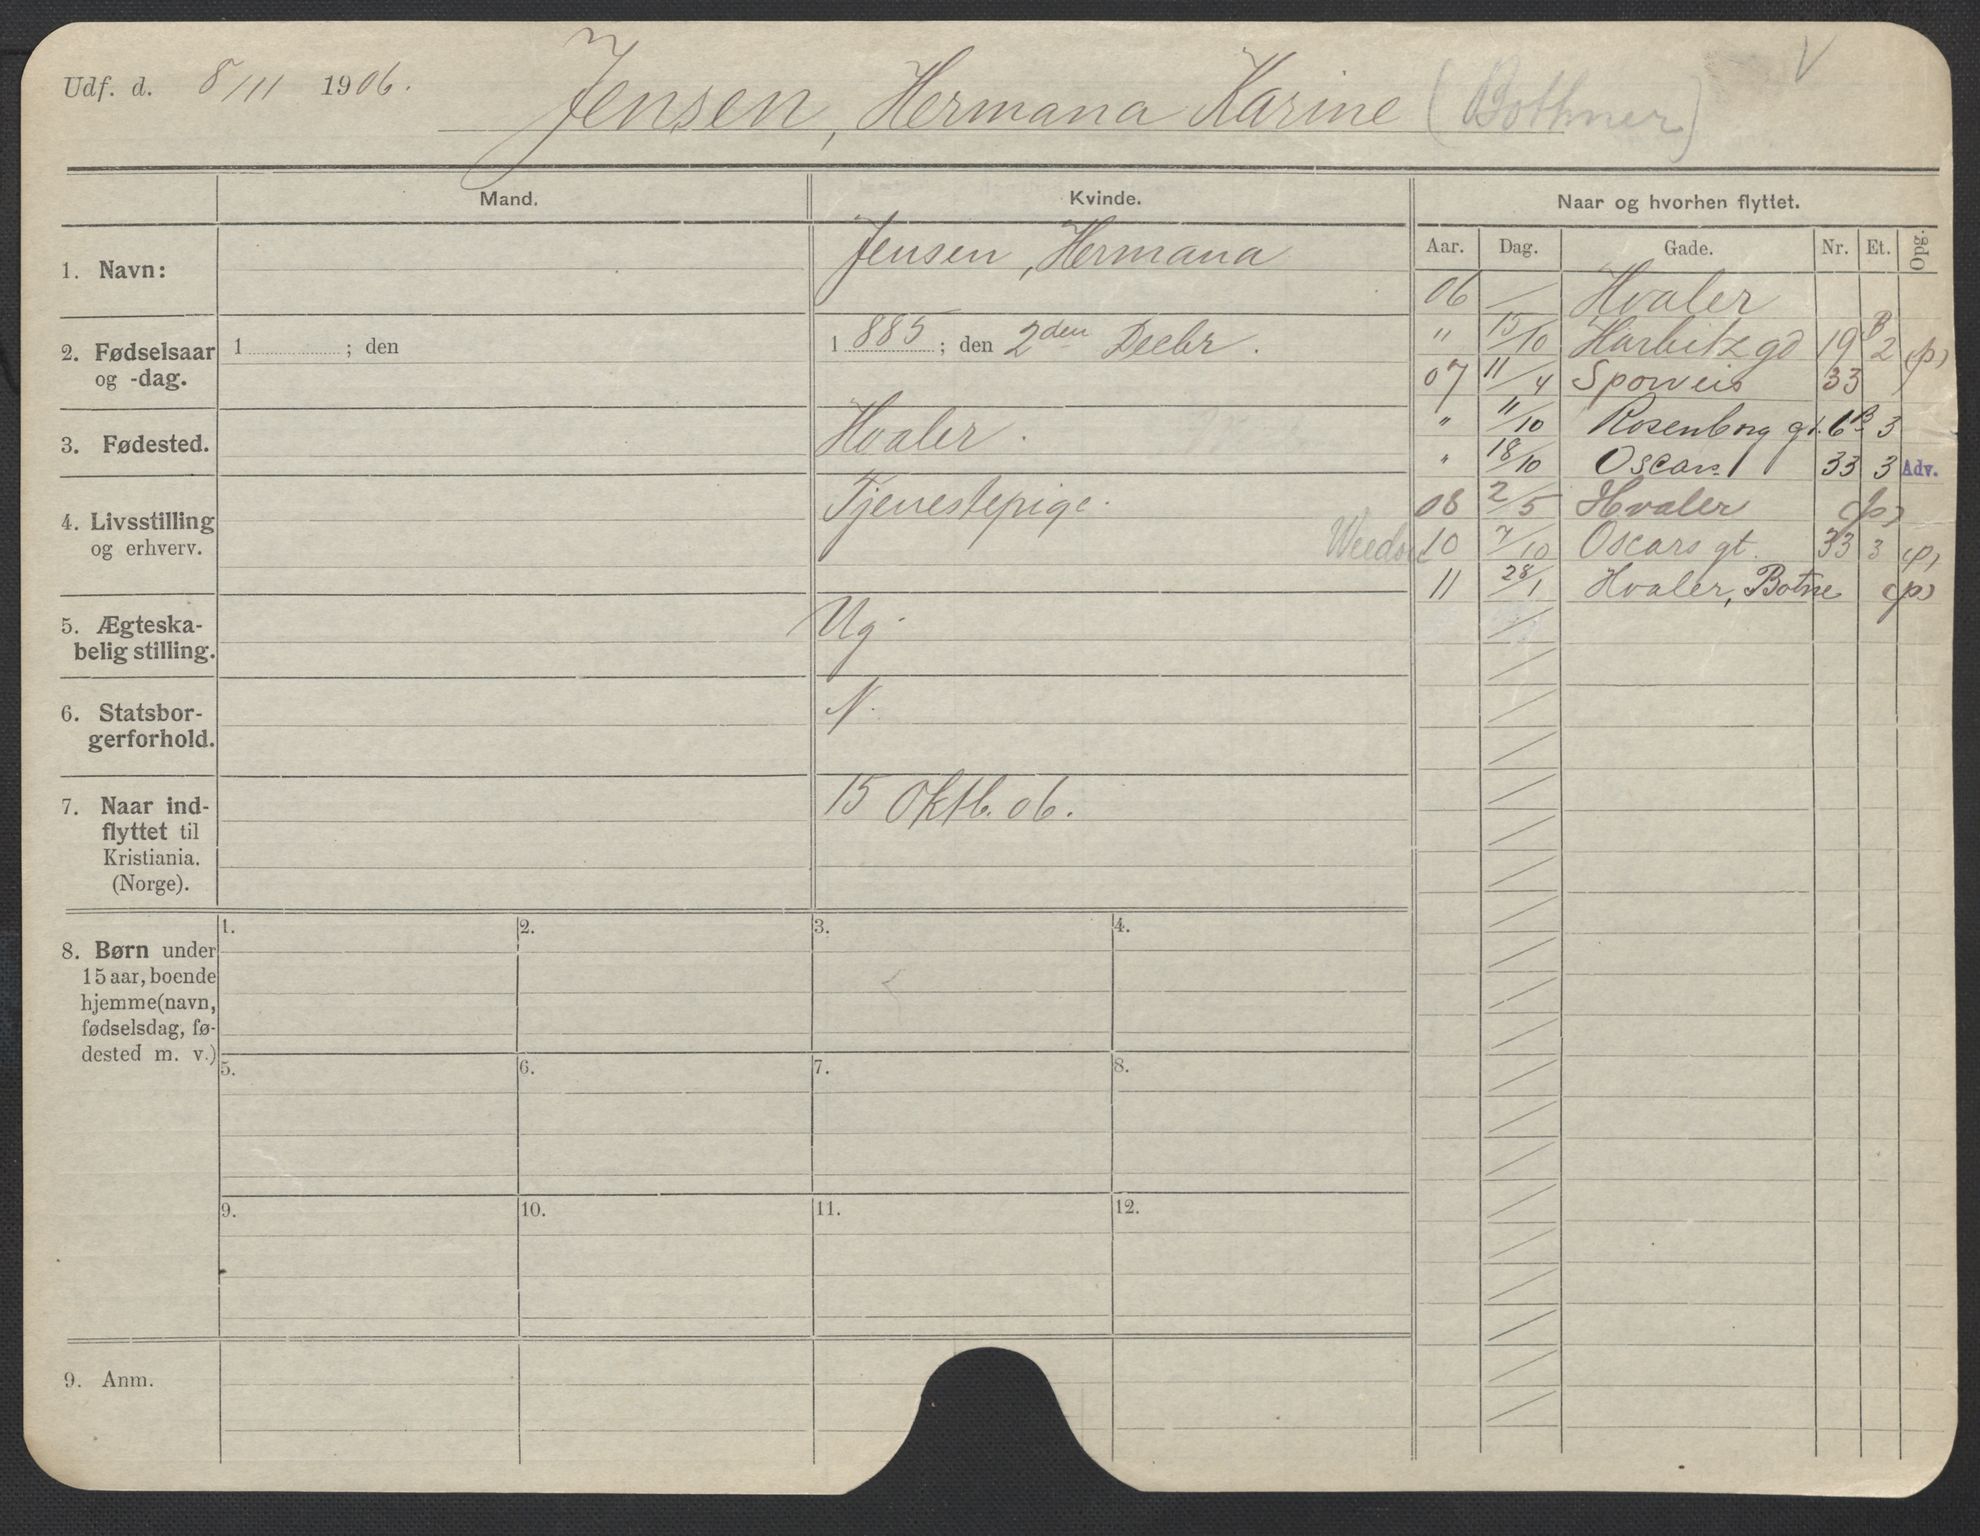 Udf. d. 8/11 1906.
Jensen, Hermana Karine (Bothner)
V
Mand. Kvinde. Naar og hvorhen flyttet.
Aar. Dag. Gade. Nr. Et. Opg.
1. Navn: Jensen, Hermana
2. Fødselsaar og -dag. 1 ; den 1 885 ; den 2den Decbr.
3. Fødested. Hvaler.
4. Livsstilling og erhverv. Tjenestepige.
5. Ægteska-
belig stilling. Ug.
6. Statsbor-
gerforhold. N.
7. Naar ind-
flyttet til
Kristiania.
(Norge).
15 Oktb. 06.
06 / Hvaler
" 15/10 Harbitz gd 19B 2 (p)
07 11/4 Sporveis 33
" 11/10 Rosenborg gt. 6B 3
" 18/10 Oscars 33 3 Adv.
08 2/5 Hvaler (p)
10 7/10 Oscars gt. 33 3 (p)
11 28/1 Hvaler, Botne (p)
8. Børn under
15 aar, boende
hjemme(navn,
fødselsdag, fø-
dested m. v.)
1. 2. 3. 4.
5. 6. 7. 8.
9. 10. 11. 12.
9. Anm.